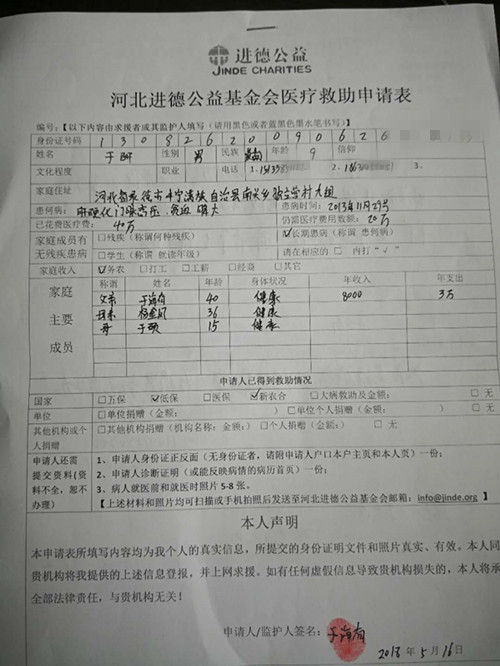 进德公益
JINDE CHARITIES
河北进德公益基金会医疗救助申请表
编号:【以下内容由求援者或其监护人填写(请用黑色或者蓝黑色墨水笔书写)】
身份证号码 1 3 0 8 2 6 2 0 0 9 0 6 2 6
姓名 于 性别 男 民族 年龄 9 信仰
文化程度 职业 电话 1. 2.
家庭住址 河北省承德市丰宁满族自治县南关乡 营村大组
患何病: 肝硬化门脉高压 贫血 脾大 患病时间: 2013年11月27号
已花费医疗费: 40万 仍需医疗费用数额: 20万
家庭成员有无残疾患病 □残疾(称谓何种残疾) ☑长期患病(称谓 患何病)
□学生(称谓 就读年级) 请在相应的 □ 内打 "√"
家庭收入 ☑务农 □打工 □工薪 □经商 □其它
家庭主要成员 称谓 姓名 年龄 身体状况 年收入 年支出
父亲 于海有 40 健康 8000 3万
母亲 杨金凤 36 健康
于颖 15 健康
申请人已得到救助情况
国家 □五保 ☑低保 □医保 ☑新农合 □大病救助及金额: □ 无
单位 □单位捐赠(金额: ) □单位个人捐赠(金额: ) □ 无
其他机构或个人捐赠 □其他机构捐赠(机构名称: 金额:) □个人捐赠(金额: ) □ 无
申请人还需提交资料(资料不全,恕不办理)
1、申请人身份证正反面(无身份证者,请附申请人户口本户主页和本人页)一份;
2、申请人诊断证明(或能反映病情的病历首页)一份;
3、病人就医前和就医时照片 5-8 张。
【上述材料和照片均可扫描或手机拍照后发送至河北进德公益基金会邮箱:info@jinde.org】
本人声明
本申请表所填写内容均为我个人的真实信息,所提交的身份证明文件和照片真实、有效。本人同
贵机构将我提供的上述信息登报,并上网求援。如有任何虚假信息导致贵机构损失的,本人将承
全部法律责任,与贵机构无关!
申请人/监护人签名: 于海有
2018 年 5 月 16日